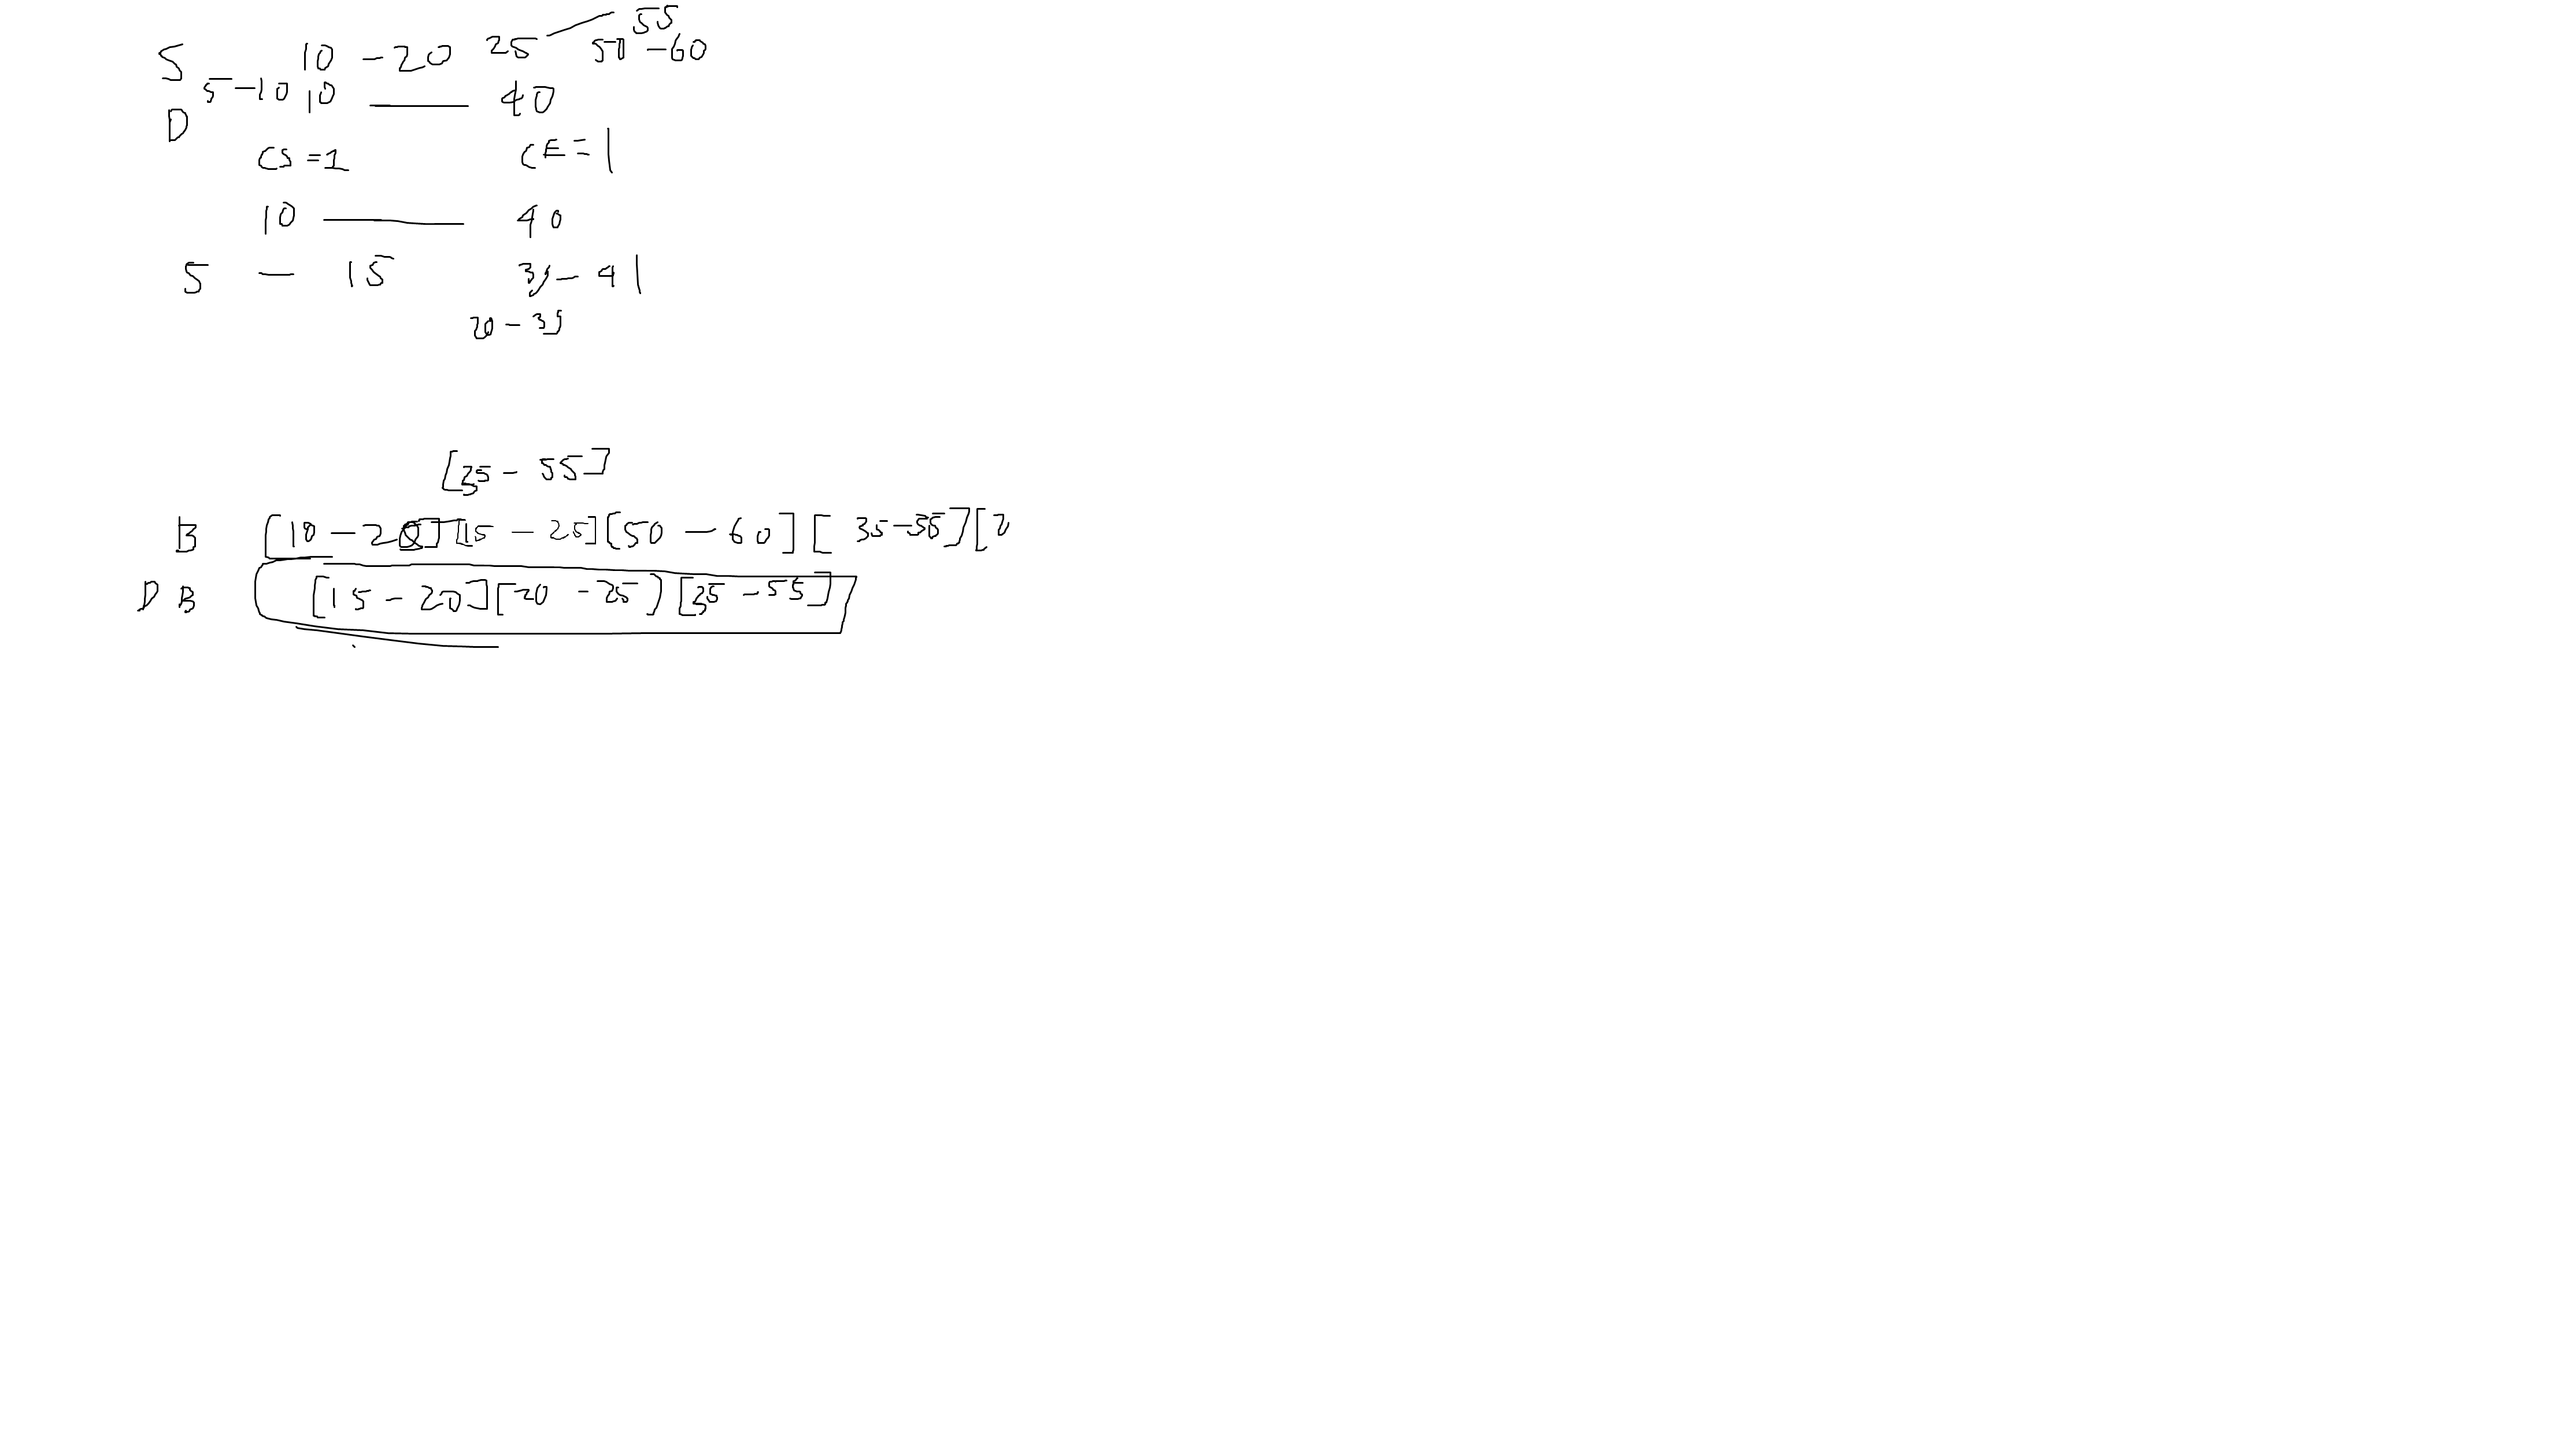 55
S 10 - 20 25 50 - 60
5 - 10 10 — 40
D
CS = 1 CE = 1
10 — 40
5 - 15 35 - 41
20 - 35
[35 - 55]
B [10 - 20] [15 - 25] [50 - 60] [35 - 55] [2
DB [15 - 20] [20 - 25) [35 - 55]